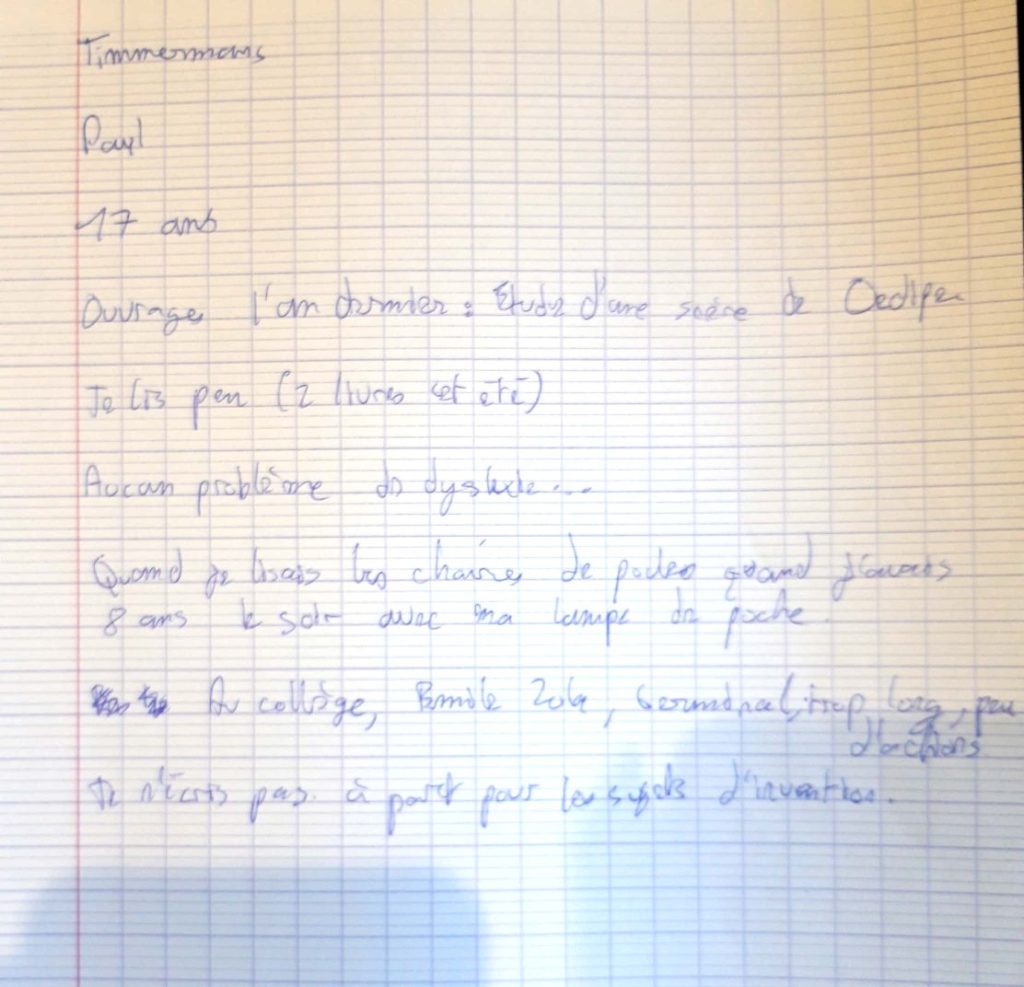 Timmermans
Paul
17 ans
Ouvrage l'an dernier : Etude d'une scène de Oedipe
Je lis peu (2 livres cet été)
Aucun problème de dyslexie...
Quand je lisais les de quand j'avais
8 ans le soir avec ma lampe de poche.
Au collège, Emile Zola, Germinal, trop long, peu
d'actions
Je n'écris pas à part pour les sujets d'invention.